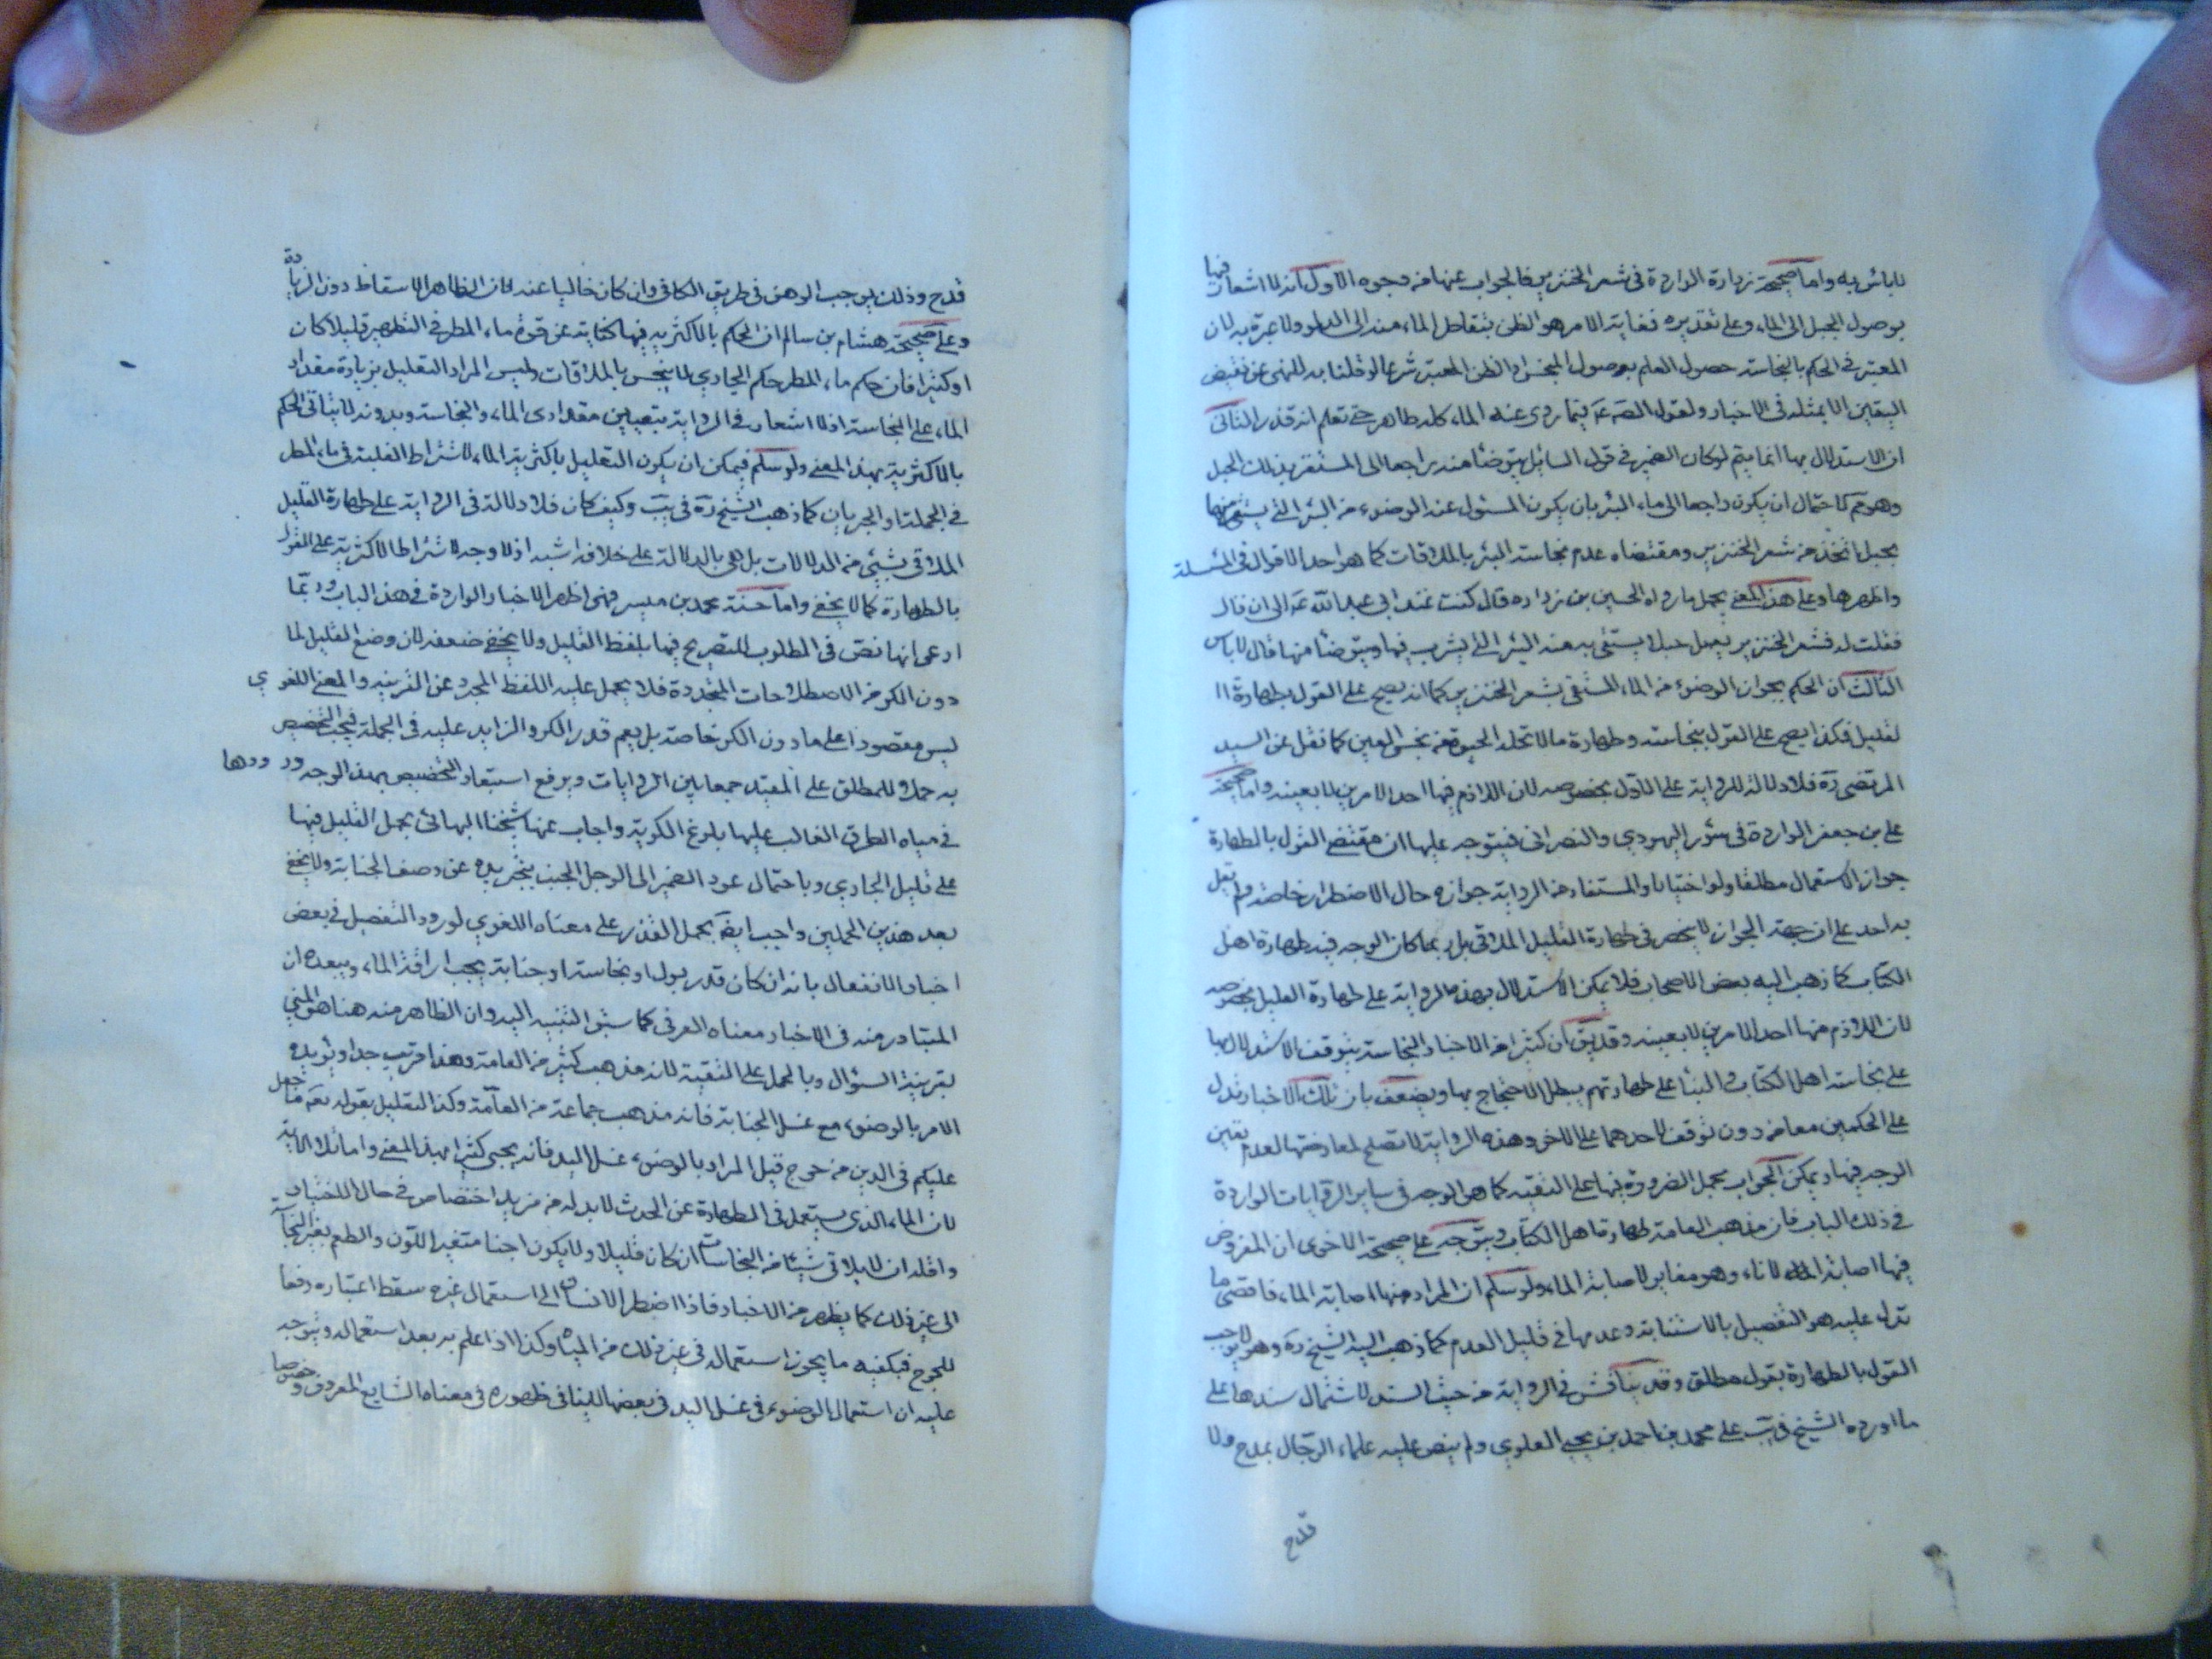 للبائر به واما صحيحة زرارة الواردة فى شعر الخنزير فالجواب عنها من وجوه الاول انه لا اشعار فيها
بوصول الحبل الى الماء وعلى تقديره فغاية الامر هو الظن بتقاطر الماء منه الى الدلو ولا عبرة به لان
المعتبر فى الحكم بالنجاسة حصول العلم بوصول المنجس او الظن المعتبر شرعا لو قلنا به للنهى عن نقض
اليقين الا بمثله فى الاخبار ولقول الصم عم فيما روى عنه الماء كله طاهر حتى تعلم انه قذر الثانى
ان الاستدلال بها انما يتم لو كان الضمير فى قول السائل يتوضأ منه راجعا الى المستقى بذلك الحبل
وهو مم لاحتمال ان يكون راجعا الى ماء البئر بان يكون المسئول عنه الوضوء من البئر التى يستقى منها
بحبل اتخذ من شعر الخنزير ومقتضاه عدم نجاسة البئر بالملاقات كما هو احد الاقوال فى المسئلة
واظهرها وعلى هذا المعنى يحمل ما رواه الحسين بن زراره قال كنت عند ابى عبد الله عم الى ان قال
فقلت له فشعر الخنزير يعمل حبلا يستقى به من البئر التى يشرب فيها ويتوضأ منها قال لا باس
الثالث ان الحكم بجواز الوضوء من الماء المستقى بشعر الخنزير كما انه يصح على القول بطهارة ا
لقليل فكذا يصح على القول بنجاسته وطهارة ما لا تحله الحيوة من نجس العين كما نقل عن السيد
المرتضى ره فلا دلالة للرواية على الاول بخصوصه لان اللازم فيها احد الامرين لا بعينه واما صحيحة
على بن جعفر الواردة فى سؤر اليهودي والنصرانى فيتوجه عليها ان مقتضى القول بالطهارة
جواز الاستعمال مطلقا ولو اختيارا والمستفاد من الرواية جوازه حال الاضطرار خاصة ولم يقل
به احد على ان جهة الجواز لا ينحصر فى طهارة القليل الملاقى بل ربما كان الوجه فيه طهارة اهل
الكتاب كما ذهب اليه بعض الاصحاب فلا يمكن الاستدلال بهذه الرواية على طهارة القليل بخصوصه
لان اللازم منها احد الامرين لا بعينه وقد يق ان كثيرا من الاخبار النجاسة يتوقف الاستدلال بها
على نجاسة اهل الكتاب فالبنا على طهارتهم يبطل الاحتجاج بها ويضعف بان تلك الاخبار تدل
على الحكمين معا من دون توقف لاحدهما على الاخر وهذه الرواية لا تصلح لمعارضتها لعدم تعين
الوجه فيها ويمكن الجواب بحمل الضرورة فيها على التقيه كما هو الوجه فى ساير الروايات الواردة
فى ذلك الباب فان مذهب العامة طهارة اهل الكتاب ويتوجه على صحيحته الاخرى ان المفروض
فيها اصابة الاناء وهو مغاير لاصابة الماء ولو سلم ان المراد منها اصابة الماء فاقصى ما
تدل عليه هو التفصيل بالاستبانة وعدمها فى قليل الدم كما ذهب اليه الشيخ ره وهو لا يوجب
القول بالطهارة بقول مطلق وقد يناقش فى الرواية من حيث السند لاشتمال سندها على
ما اورده الشيخ فى يب على محمد بن احمد بن يحيى العلوي ولم ينص عليه علماء الرجال بمدح ولا
قدح
قدح وذلك يوجب الوهن فى طريق الكافى وان كان خاليا عنه لان الظاهر الاسقاط دون الزيادة
وعلى صحيحة هشام بن سالم ان الحكم بالاكثرية فيها كناية عن قوة ماء المطر فى التطهير قليلا كان
او كثيرا فان حكم ماء المطر حكم الجاري لا ينجس بالملاقات وليس المراد التقليل بزيادة مقدار
الماء على النجاسة اذ لا اشعار فى الرواية بتعيين مقدارى الماء والنجاسة وبدونه لا يتاتى الحكم
بالاكثرية بهذا المعنى ولو سلم فيمكن ان يكون التعليل باكثرية الماء لاشتراط الغلبة فى ماء المطر
فى الجملة او الجريان كما ذهب الشيخ ره فى يب وكيف كان فلا دلالة فى الرواية على طهارة القليل
الملاقى بشيئ من الدلالات بل هى بالدلالة على خلافه اشبه اذ لا وجه لاشتراط الاكثرية على القول
بالطهارة كما لا يخفى واما حسنة محمد بن ميسر فهى اظهر الاخبار الواردة فى هذا الباب وربما
ادعى انها نص فى المطلوب للتصريح فيها بلفظ القليل ولا يخفى ضعفه لان وضع القليل لما
دون الكر من الاصطلاحات المتجددة فلا يحمل عليه اللفظ المجرد عن القرينه والمعنى اللغوي
ليس مقصورا على ما دون الكر خاصة بل يعم قدر الكر والزايد عليه فى الجملة فيجب التخصيص
به حملا للمطلق على المقيد جمعا بين الروايات ويرفع استبعاد التخصيص بهذا الوجه ورودها
فى مياه الطرق الغالب عليها بلوغ الكرية واجاب عنها شيخنا البهائى بحمل القليل فيها
على قليل الجاري وباحتمال عود الضمير الى الرجل الجنب بتجريده عن وصف الجنابة ولا يخفى
بعد هذين الحملين واجب ايض بحمل القذر على معناه اللغوي لورود التفصيل فى بعض
اخبار الانفعال بانه ان كان قدر بول او نجاسة او جنابة يجب اراقة الماء ويبعده ان
المتبادر منه فى الاخبار معناه العرفى كما سبق التنبيه اليه وان الظاهر منه هنا هو المنى
بقرينة السؤال وبالحمل على التقية لانه مذهب كثير من العامة وهذا قريب جدا ويؤيده
الامر بالوضوء مع غسل الجنابة فانه مذهب جماعة من العامة وكذا التعليل بقوله تعم ما جعل
عليكم فى الدين من حرج قيل المراد بالوضوء غسل اليد فانه يجيئ كثيرا بهذا المعنى واما تلا الاية
لان الماء الذى يستعمل فى الطهارة عن الحدث لا بد له من مزيد اختصاص فى حال الاختيار
واقله ان لا يلاقى شيئا من النجاسات ان كان قليلا ولا يكون اجنا متغير اللون والطعم بغير النجاسة
الى غير ذلك كما يظهر من الاخبار فاذا اضطر الانسان الى استعمال غيره سقط اعتباره دفعا
للحرج فيكفيه ما يجوز استعماله فى غير ذلك من المياه وكذا اذا علم به بعد استعماله ويتوجه
عليه ان استعمال الوضوء فى غسل اليد فى بعضها لا ينافى ظهوره فى معناه الشايع المعروف وخصوصا